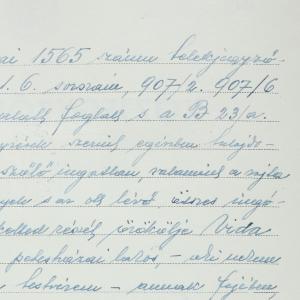 ai 1565 számú telekjegyző-
1. 6. sorszám, 907/2. 907/6
alatt foglalt s a B 23/a.
szerint egészben tulajdo-
ingatlan, valamint a rajta
s az ott lévő összes ingó-
részét örökölje Vida
petesházai lakos, –
testvérem – annak fejében,